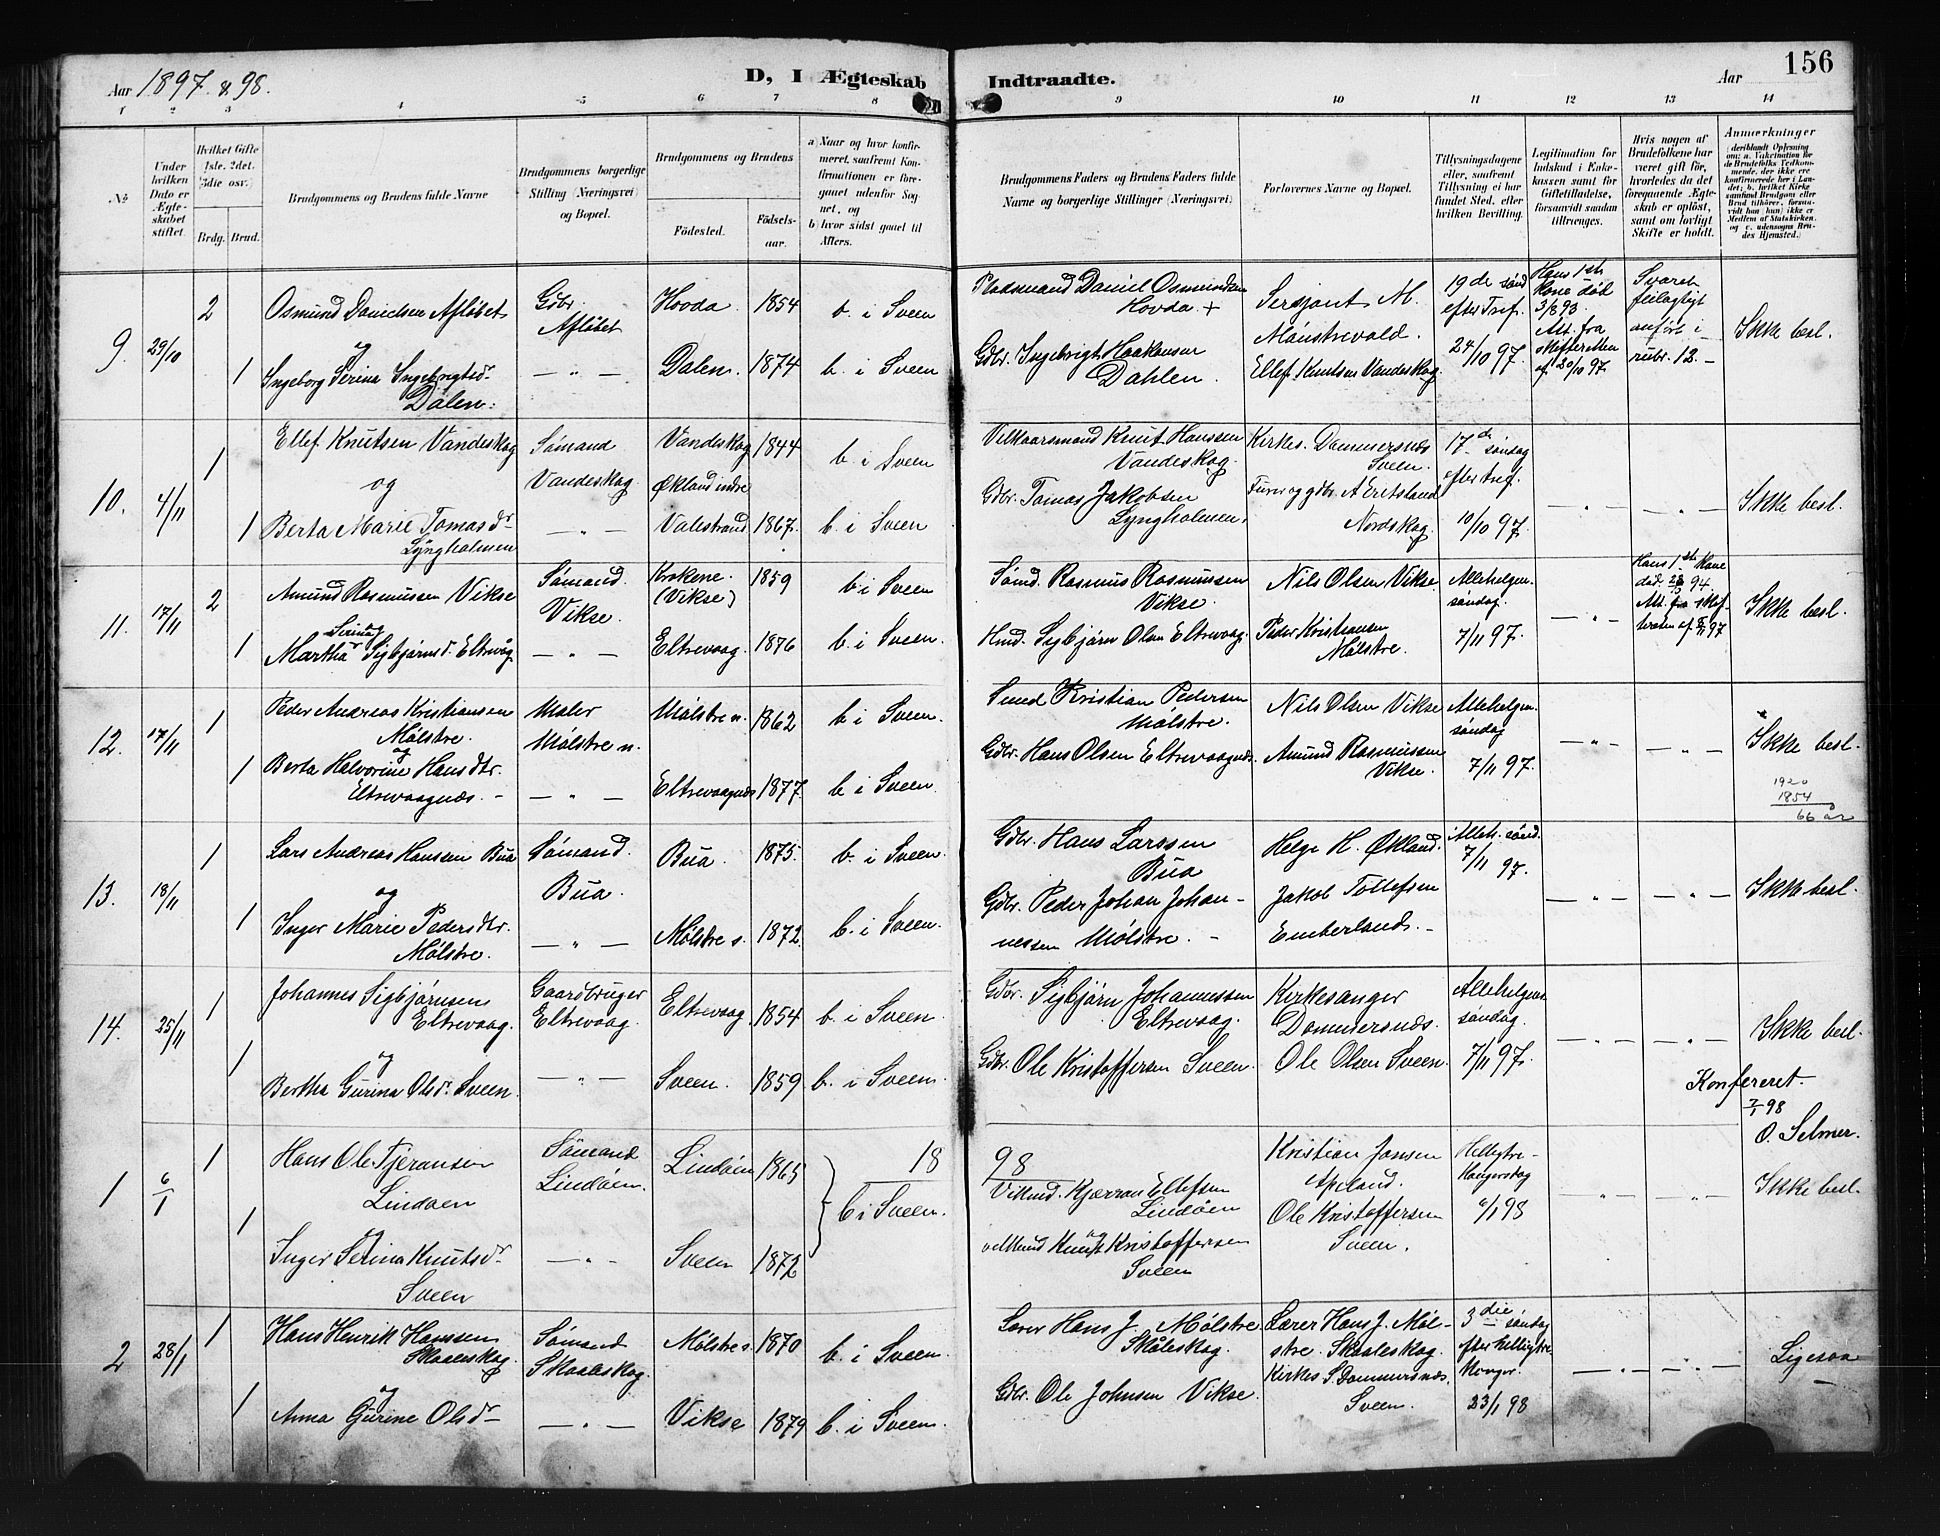 Aar 1897 & 98.
D, I Ægteskab Indtraadte.
Aar
156
1 2 3 4 5 6 7 8 9 10 11 12 13 14
№
Under hvilken Dato er Ægteskabet stiftet.
Hvilket Gifte (1ste, 2det, 3die osv.)
Brdg. Brud.
Brudgommens og Brudens fulde Navne
Brudgommens borgerlige Stilling (Næringsvei) og Bopæl.
Brudgommens og Brudens
Fødested.
Fødselsaar.
a) Naar og hvor konfirmeret, saafremt Konfirmationen er foregaaet udenfor Sognet, og
b) hvor sidst gaaet til Alters.
Brudgommens Faders og Brudens Faders fulde Navne og borgerlige Stillinger (Næringsvei)
Forlovernes Navne og Bopæl.
Tillysningsdagene eller, saafremt Tillysning ei har fundet Sted, efter hvilken Bevilling.
Legitimation for Indskud i Enkekassen samt for Giftetilladelse, forsaavidt saadan tiltrænges.
Hvis nogen af Brudefolkene har været gift før, hvorledes da det foregaaende Ægteskab er opløst, samt om lovligt Skifte er holdt.
Anmerkninger (deriblandt Oplysning om: a. Vakcination for de Brudefolks Vedkommende, der ikke ere konfirmerede her i Landet; b. hvilket Kirkesamfund Brudgom eller Brud tilhører, forsaavidt han (hun) ikke er Medlem af Statskirken, og c. udensogns Brudes Hjemsted.)
9. 29/10 2 Osmund Danielsen Afløbet Gdbr. Afløbet Hovda. 1854 b. i Sveen
Pladsmand Daniel Osmundsen Hovda + Sersjant M. Mønstrevold. 19de sønd efter Tref. 24/10 97.
Hans 1ste Kone død 3/8 93. Att. fra skifteretten af 20/10 97.
Svaret feilagtigt anført i rubr. 12. –
Ikke besl.
og
1 Ingeborg Serina Ingebrigtsdr. Dalen. — " — Dalen. 1874 b. i Sveen
Gdbr. Ingebrigt Haakonsen Dahlen. Ellef Knutsen Vandeskog.
10. 4/11 1 Ellef Knutsen Vandeskog Sømand Vandeskog Vandeskog 1844 b. i Sveen
Vilkaarsmand Knut Hanssen Vandeskog. Kirkes. Dommersnæs Sveen. 17de søndag efter tref. 10/10 97. — " — — " — Ikke besl.
og
1 Berta Marie Tomasdr Lyngholmen — " — Økland indre Valestrand 1867. b. i Sveen
Gdbr. Tomas Jakobsen Lyngholmen. Furer og gdbr. A Eritsland Nordskog.
11. 17/11 2 Amund Rasmussen Vikse Sømand. Vikse. Krokene. (Vikse) 1859 b. i Sveen
Sømd. Rasmus Rasmussen Vikse. Nils Olsen Vikse. Allehelgensøndag. 7/11 97. — " —
Hans 1ste Kone død. 94. Att. fra skifteretten af 97
Ikke besl.
1 Martha Serina Sigbjørnsd. Eltrevåg. — " — Eltrevaag. 1876 b. i Sveen.
Hmd. Sigbjørn Olsen Eltrevaag. Peder Kristiansen Mølstre.
12. 17/11 1 Peder Andreas Kristiansen Mølstre. Maler Mølstre n. Mølstre n. 1862 b. i Sveen.
Smed Kristian Pedersen Mølstre. Nils Olsen Vikse Allehelgensøndag 7/11 97. — " — — " — Ikke besl.
og
1 Berta Halvorine Hansdtr. Eltrevaagnæs. – — " — Eltrevaagnæs 1877. b. i Sveen.
Gdbr. Hans Olsen Eltrevaagnæs. Amund Rasmussen Vikse.
1920
1854
66 år
13. 18/11 1 Lars Andreas Hansen Bua Sømand. Bua. Bua. 1875. b. i Sveen.
Gdbr. Hans Larssen Bua Helge H. Økland. Alleh. sønd. 7/11 97. — " — — " — Ikke besl.
og
1 Inger Marie Pedersdtr. Mølstre. — " — Mølstre s. 1872. b. i Sveen.
Gdbr. Peder Johan Johannessen Mølstre. – Jakob Tollefsen Emberland. –
14. 25/11 1 Johannes Sigbjørnsen Eltrevaag. Gaardbruger Eltrevaag. Eltrevaag 1854 b. i Sveen.
Gdbr. Sigbjørn Johannessen Eltrevaag. Kirkesanger Dommersnæs. Allehelgens søndag. 7/11 97. — " — — " — Ikke besl.
og
1 Bertha Gurina Olsdr. Sveen. — " — Sveen. 1859 b. i Sveen.
Gdbr. Ole Kristoffersen Sveen. Ole Olsen Sveen.
Konfereret. 7/1 98
O. Selmer.
18 98
1 6/1 1 Hans Ole Tjeransen Lindøen Sømand Lindøen. Lindøen 1865 b i Sveen.
Vilkmd. Kjerran Ellefsen Lindøen Kristian Jonsen Apeland. Helligtrekongersdag 6/1 98 " " Ikke besl.
og
1 Inger Serina Knutsdr Sveen — " — Sveen 1872
vilkmd Knut Kristoffersen Sveen Ole Kristoffersen Sveen.
2 28/1 1 Hans Henrik Hanssen Skaaleskog Sømand Skaaleskog. Mølstre s. 1870 b. i Sveen.
Lærer Hans J. Mølstre Skåleskog. Lærer Hans J. Mølstre. Skaaleskog. 3die søndag efter helligtre konger. 23/1 98 — " — — " — Ligesaa
og
1 Anna Gurine Olsdr – — " — Vikse 1879 b. i Sveen.
Gdbr. Ole Johnsen Vikse. Kirkes S. Dommersnæs. Sveen.